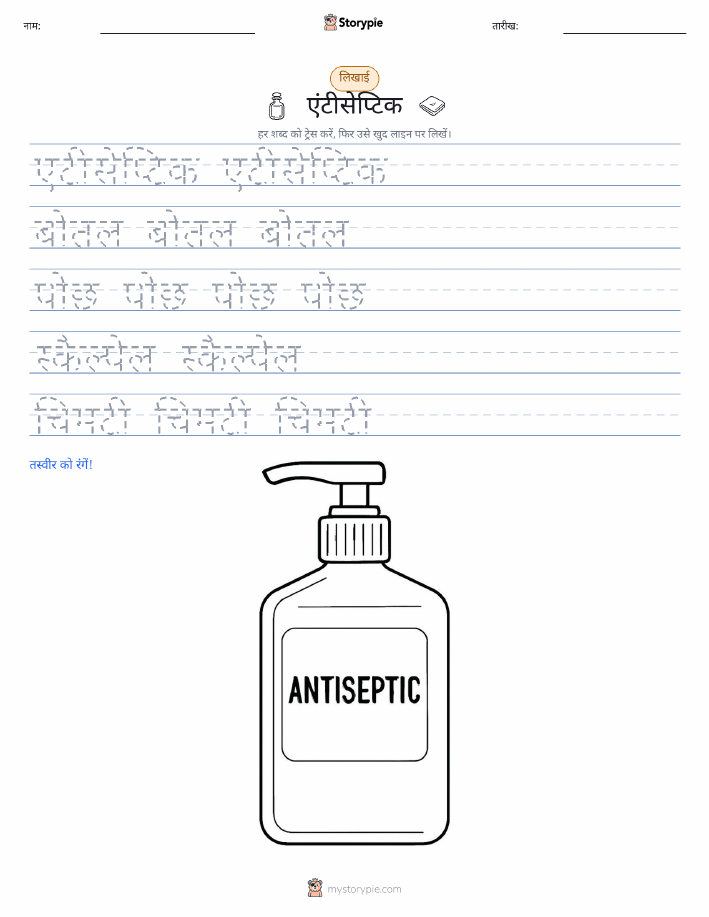 नाम:
Storypie
तारीख:
लिखाई
एंटीसेप्टिक
हर शब्द को ट्रेस करें, फिर उसे खुद लाइन पर लिखें।
एंटीसेप्टिक एंटीसेप्टिक
बोतल बोतल बोतल
पोंछ पोंछ पोंछ पोंछ
स्कैल्पेल स्कैल्पेल
चिमटी चिमटी चिमटी
तस्वीर को रंगें!
ANTISEPTIC
mystorypie.com